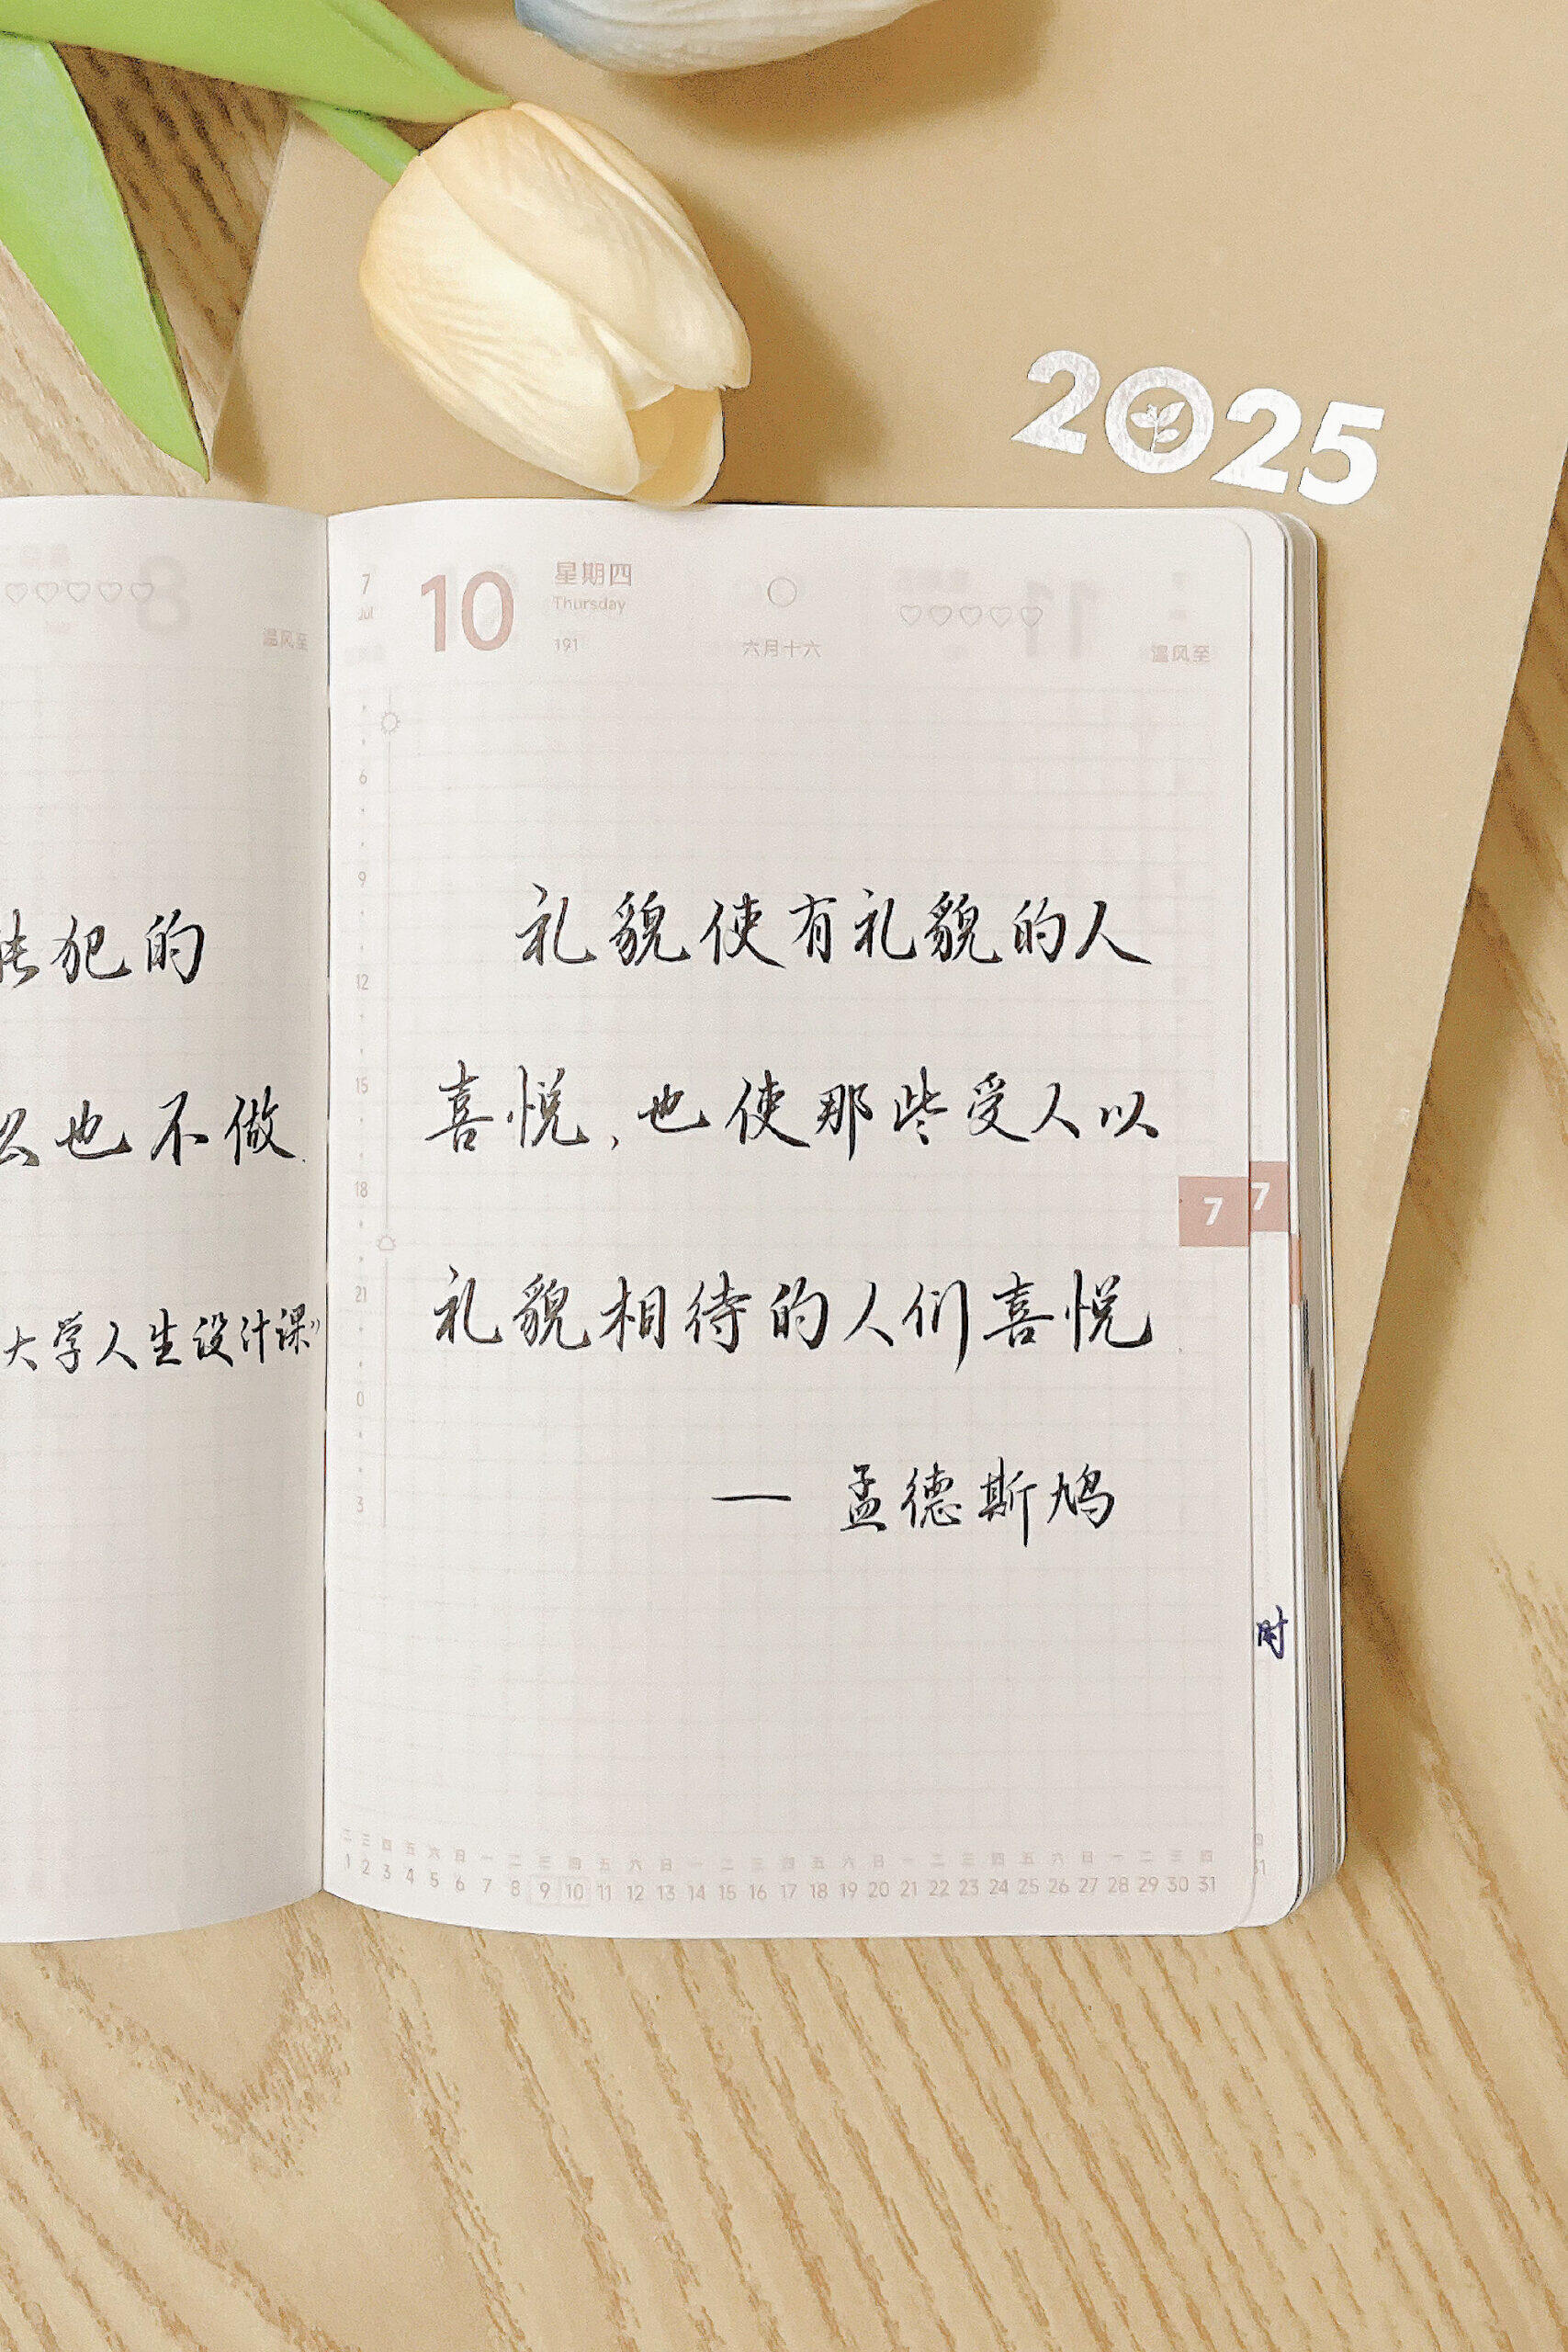 2025
温风至
能犯的
么也不做.
大学人生设计课》
7
Jul
10
星期四
Thursday
191
六月十六
温风至
6
9
12
15
18
21
0
3
礼貌使有礼貌的人
喜悦,也使那些受人以
礼貌相待的人们喜悦.
— 孟德斯鸠
7
7
时
二 三 四 五 六 日 一 二 三 四 五 六 日 一 二 三 四 五 六 日 一 二 三 四 五 六 日 一 二 三 四
1 2 3 4 5 6 7 8 9 10 11 12 13 14 15 16 17 18 19 20 21 22 23 24 25 26 27 28 29 30 31
四
31